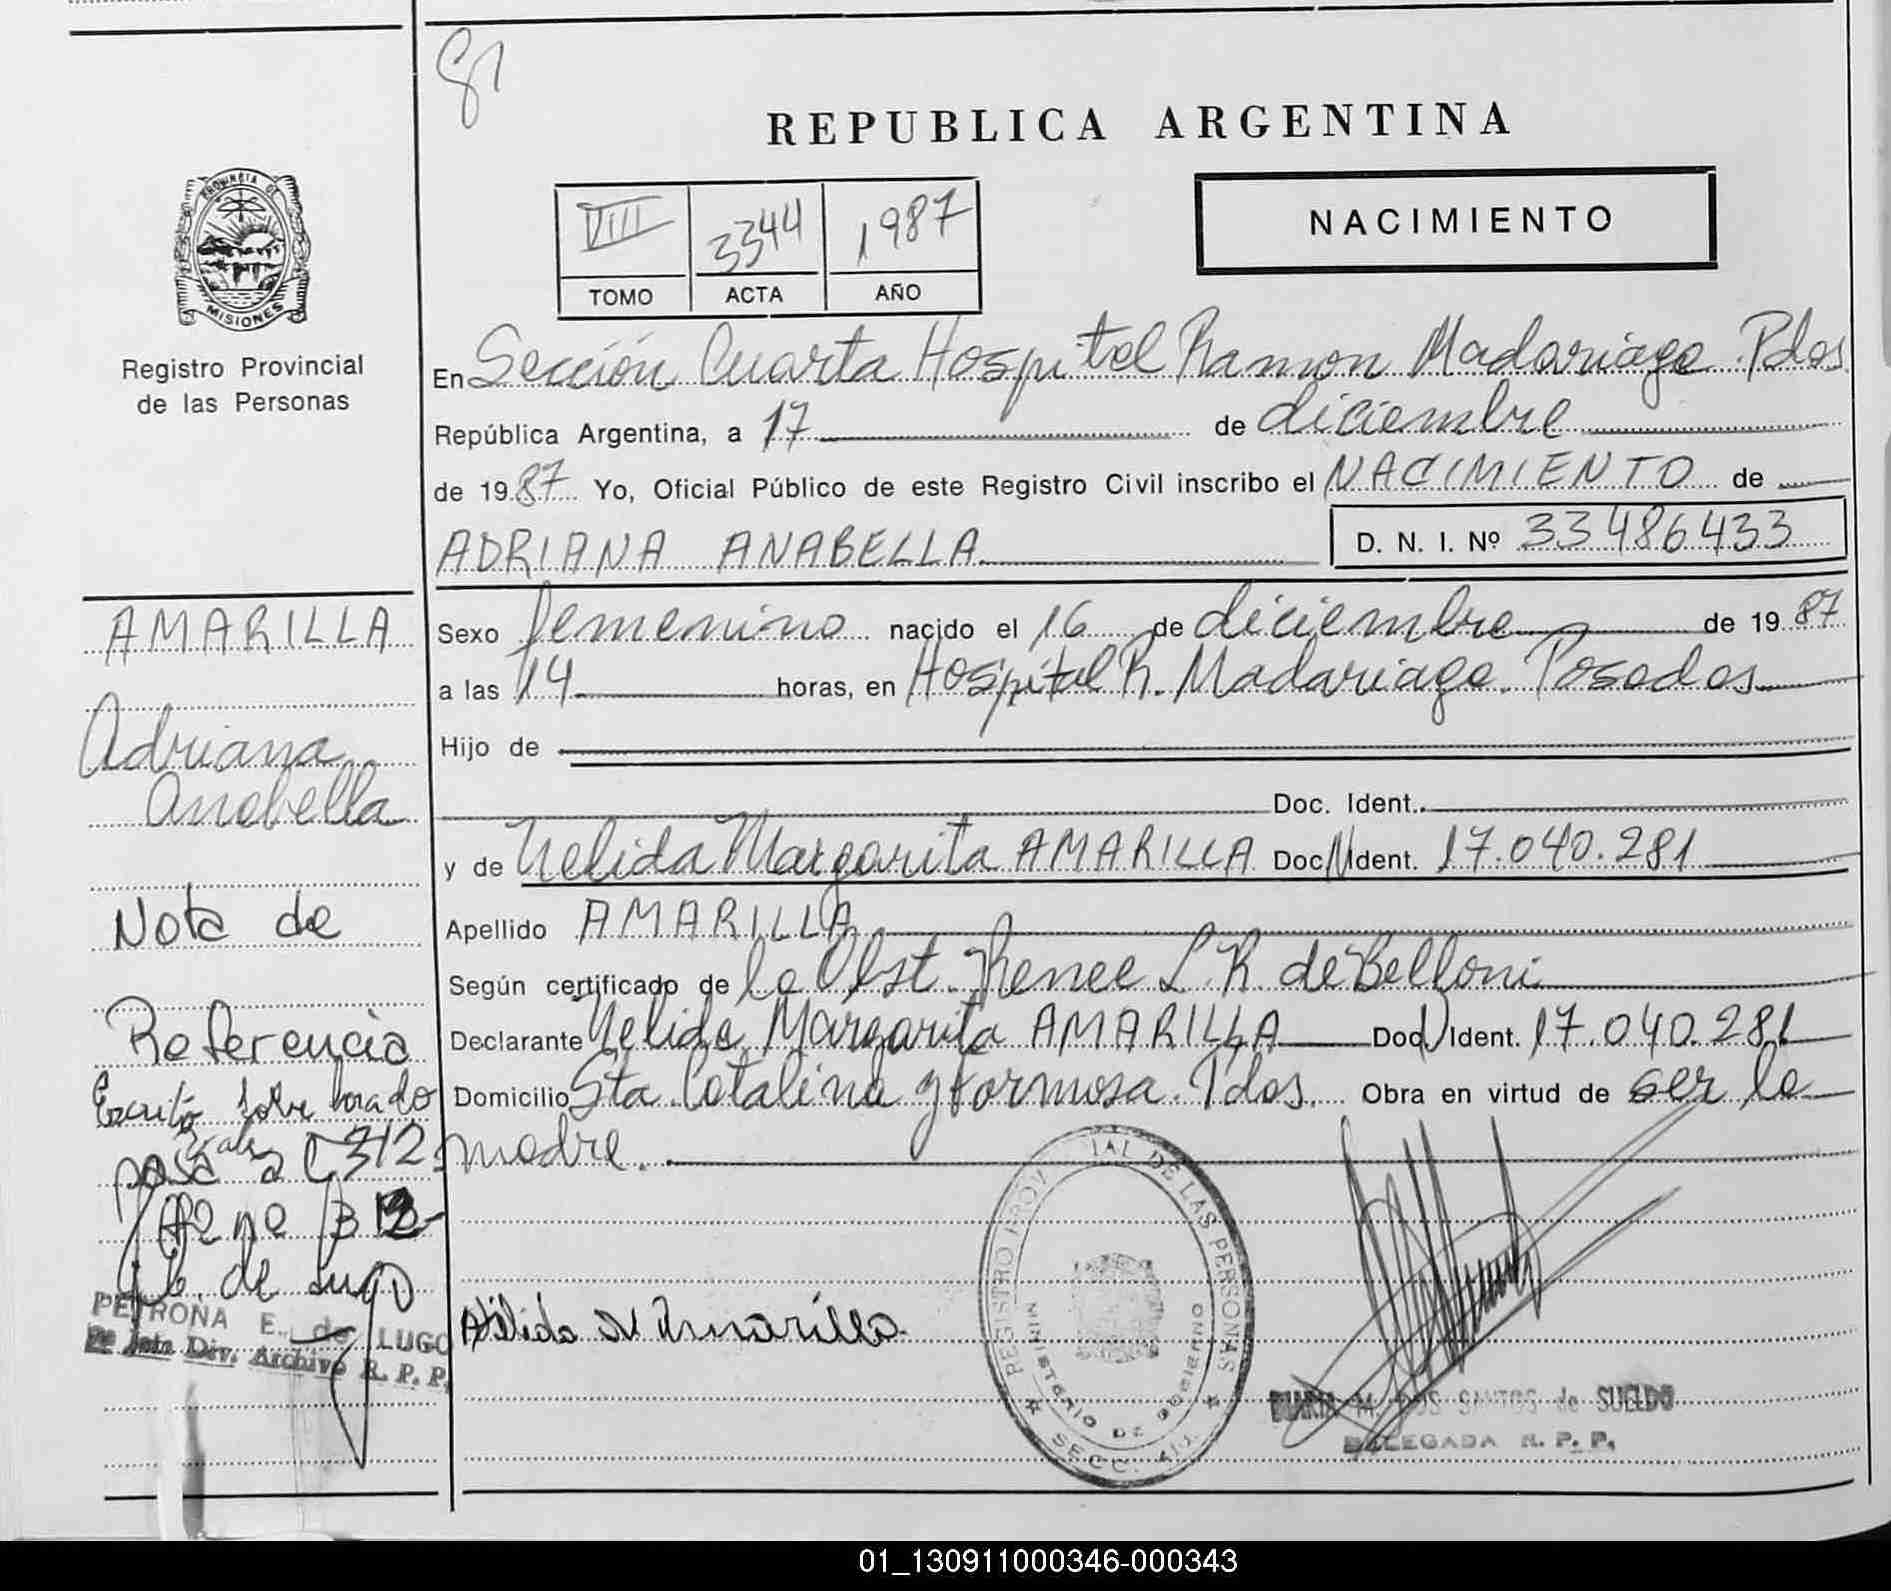 81
REPUBLICA ARGENTINA
PROVINCIA DE
MISIONES
Registro Provincial
de las Personas
VIII 3344 1987
TOMO ACTA AÑO
NACIMIENTO
En Sección Cuarta Hospital Ramon Madariaga. Pdas
República Argentina, a 17 de diciembre
de 1987 Yo, Oficial Público de este Registro Civil inscribo el NACIMIENTO de
ADRIANA ANABELLA D. N. I. Nº 33486433
Sexo femenino nacido el 16 de diciembre de 1987
a las 14 horas, en Hospital R. Madariaga. Posadas
Hijo de
Doc. Ident.
y de Nelida Margarita AMARILLA Doc. Ident. 17.040.281
Apellido AMARILLA
Según certificado de la Obst. Renee L. R. de Belloni
Declarante Nelida Margarita AMARILLA Doc. Ident. 17.040.281
Domicilio Sta. Catalina y Formosa. Pdas. Obra en virtud de ser la
madre.
AMARILLA
Adriana
Anabella
Nota de
Referencia
Escrito sobre borrado
vale
pasa a C 312
P. E. de Lugo
PETRONA E. de LUGO
Div. Archivo R. P. P.
Nélida M Amarilla
REGISTRO PROVINCIAL DE LAS PERSONAS
MINISTERIO DE GOBIERNO
SECC. 4ta.
MARIA M. DOS SANTOS de SUELDO
DELEGADA R. P. P.
01_130911000346-000343